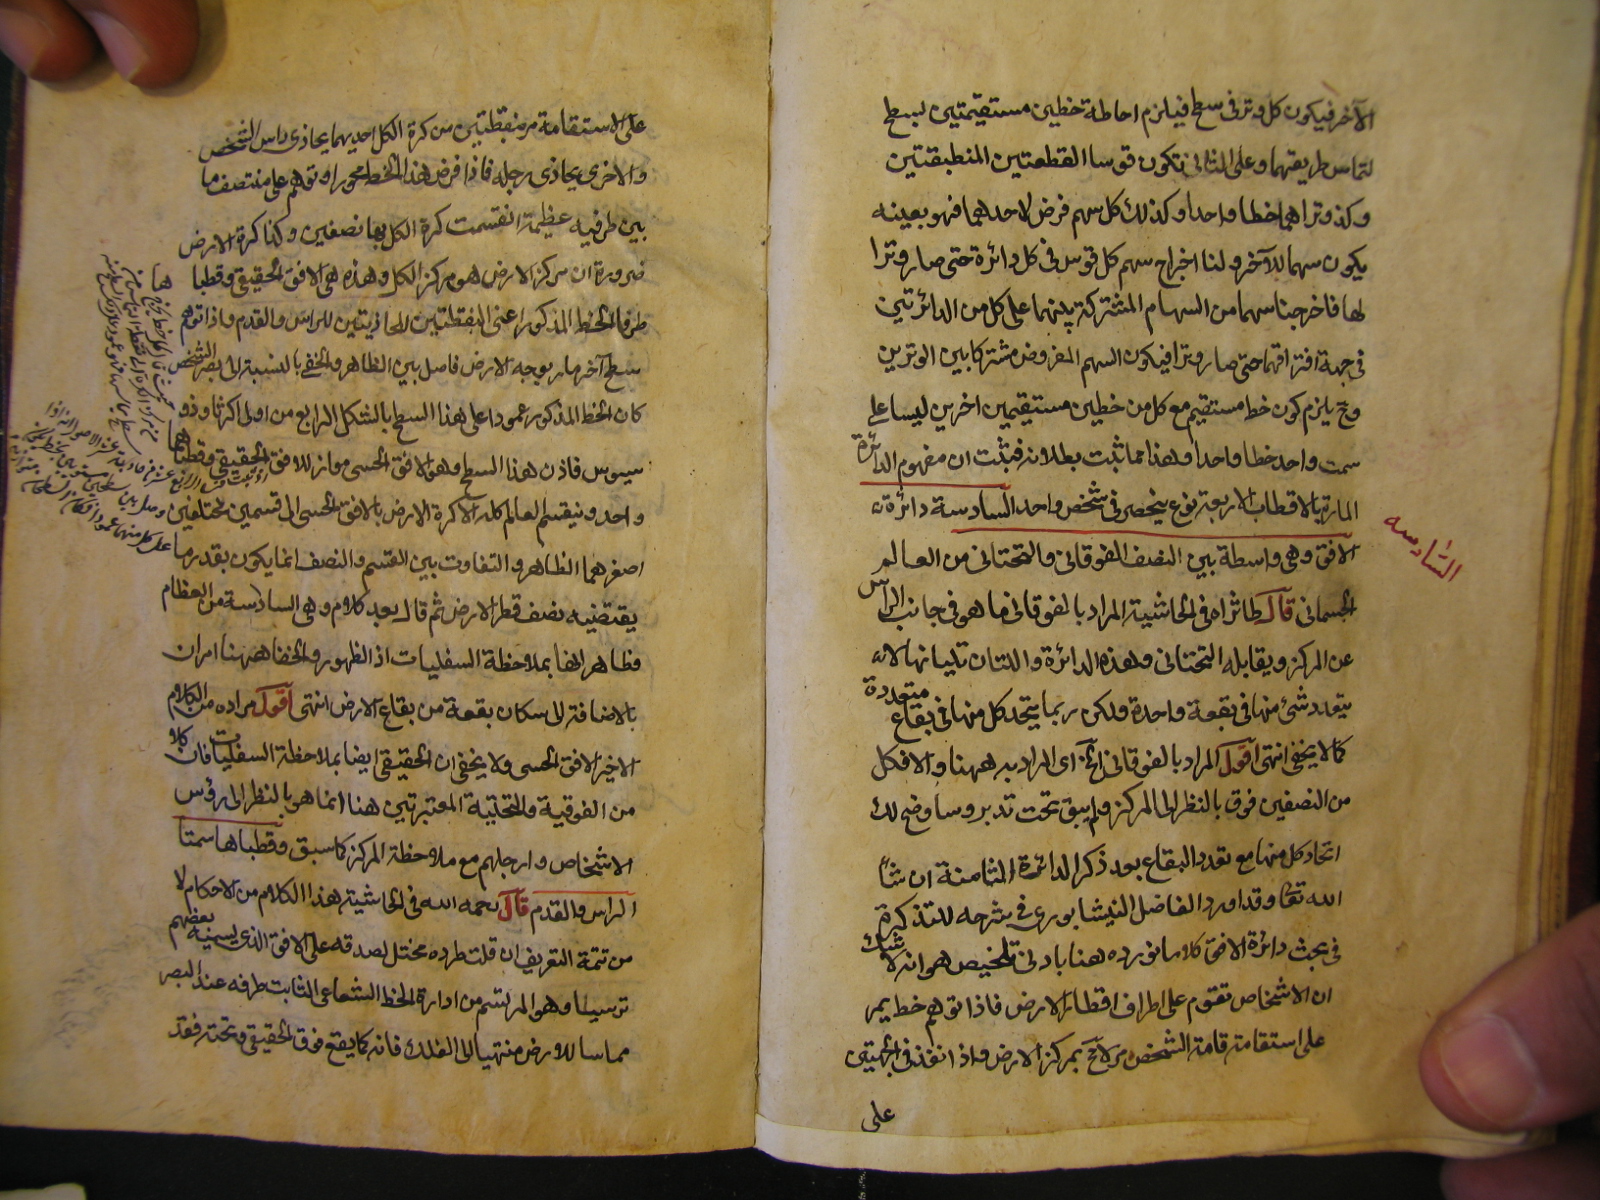 الآخر فيكون كل وتر فى سطح فيلزم احاطة خطين مستقيمتين لسطح
لتماس طريقتهما وعلى الثانى تكون قوسا القطعتين المنطبقتين
وكذ وتراهما خطا واحدا وكذلك كل سهم فرض لاحدهما فهو بعينه
يكون سهما للآخر ولنا اخراج سهم كل قوس فى كل دائرة حتى صار وترا
لها فاخرجنا سهما من السهام المشتركة بينهما على كل من الدائرتين
فى جهة افتراقهما حتى صار وترا فيكون السهم المفروض مشتركا بين الوترين
وح يلزم كون خط مستقيم مع كل من خطين مستقيمين اخرين ليسا على
سمت واحد خطا واحدا وهذا مما ثبت بطلانه فثبت ان مفهوم الدائرة
المارة بالاقطاب الاربعة نوع ينحصر فى شخص واحد السادسة دائرة
الافق وهى واسطة بين النصف الفوقانى والتحتانى من العالم
السادسه
الجسمانى قال طاب ثراه فى الحاشية المراد بالفوقانى ما هو فى جانب الرأس
عن المركز ويقابله التحتانى وهذه الدائرة واللتان تليانها لا
يتعدد شئ منها فى بقعة واحدة ولكن ربما يتحد كل منها فى بقاع متعددة
كما لا يخفى انتهى اقول المراد بالفوقانى الخ اى المراد به ههنا والا فكل
من النصفين فوق بالنظر الى المركز ولم يبق تحت تدبر وسأوضح لك
اتحاد كل منها مع تعدد البقاع بعد ذكر الدائرة الثامنة ان شاء
الله تعا وقد اورد الفاضل النيشابورى فى شرحه للتذكرة
فى بحث دائرة الافق كلاما نورده هنا بادنى تلخيص هو انه لا شك
ان الاشخاص تقوم على اطراف اقطار الارض فاذا توهم خط يمر
على استقامة قامة الشخص مر لا مح بمركز الارض واذا انفذ فى الجهتين
على
على الاستقامة مر بنقطتين من كرة الكل احديهما يحاذى راس الشخص
والاخرى يحاذى رجله فاذا فرض هذا الخط محورا وتوهم على منتصف ما
بين طرفيه عظيمة انقسمت كرة الكل بها نصفين وكذا كرة الارض
ضرورة ان مركز الارض هو مركز الكل وهذه هى الافق الحقيقى وقطباها
طرفا الخط المذكور اعنى النقطتين المحاذيتين للراس والقدم واذا توهم
سطح آخر مار بوجه الارض فاصل بين الظاهر والخفى بالنسبة الى بصر الشخص
كان الخط المذكور عمودا على هذا السطح بالشكل الرابع من اولى اكر ثاوذو
سيوس فاذن هذا السطح وهو الافق الحسى مواز للافق الحقيقى وقطباهما
واحد وينقسم العالم كله الا كرة الارض بالافق الحسى الى قسمين مختلفين
اصغرهما الظاهر والتفاوت بين القسم والنصف انما يكون بقدر ما
يقتضيه نصف قطر الارض ثم قال بعد كلام وهى السادسة من العظام
بملاحظة السفليات اذ الظهور والخفا ههنا امران
بالاضافة الى سكان بقعة من بقاع الارض انتهى اقول مراده من الكلام
الاخير الافق الحسى ولا يخفى ان الحقيقى ايضا بملاحظة السفليات فان كلا
من الفوقية والتحتية المعتبرتين هنا انما هو بالنظر الى رؤس
الاشخاص وارجلهم مع ملاحظة المركز كما سبق وقطباها سمتا
الراس والقدم قال رحمه الله فى الحاشية هذا الكلام من الاحكام لا
من تتمة التعريف ان قلت طرده مختل لصدقه على الافق الذى يسميه بعضهم
ترسيا وهو المرتسم من ادارة الخط الشعاعى الثابت طرفه عند البصر
مماسا للارض منتهيا الى الفلك فانه كما يقع فوق الحقيقى وتحته فقد